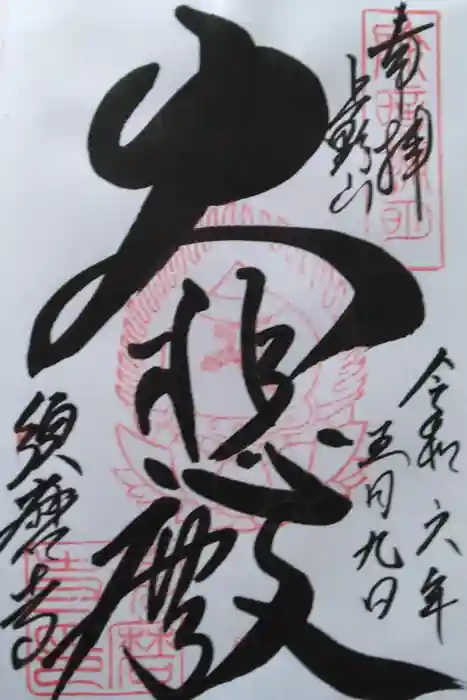 奉拝
上野山
令和六年
五月九日
大悲殿
須磨寺